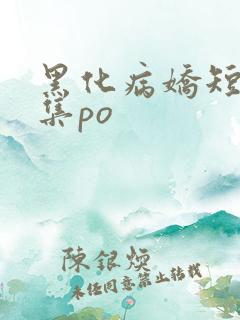 黑化病嬌短
集po
陳銀煥
未经同意禁止转载